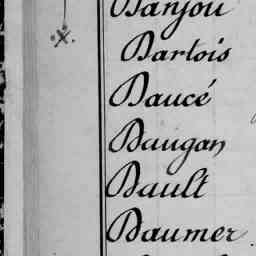 Danjou
Dartois
Daucé
Daugan
Dault
Daumer